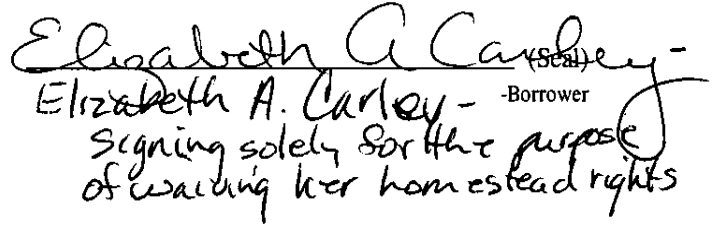 Elizabeth A Carley - (Seal)
Elizabeth A. Carley - -Borrower
signing solely for the purpose
of waiving her homestead rights